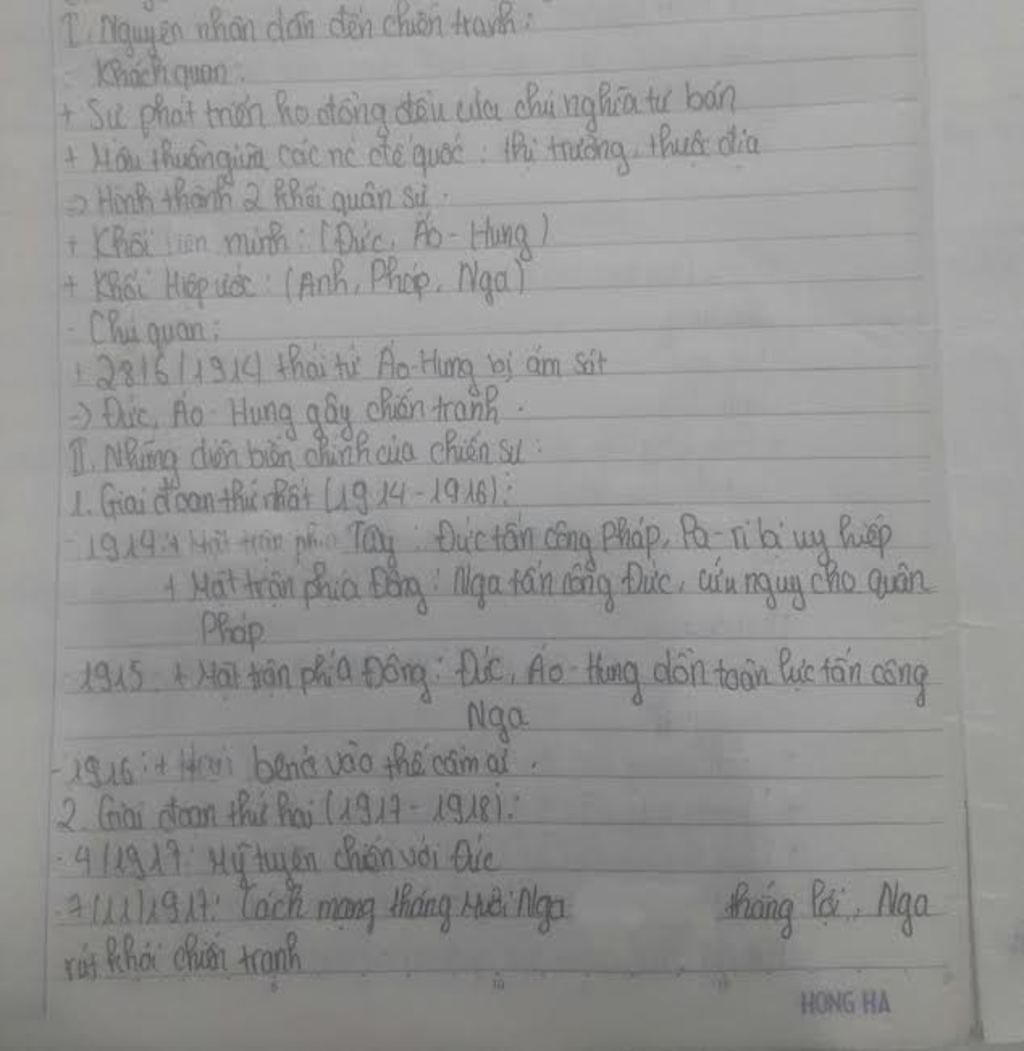 I. Nguyên nhân dẫn đến chiến tranh:
Khách quan:
+ Sự phát triển ko đồng đều của chủ nghĩa tư bản
+ Mâu thuẫn giữa các nc đế quốc: thị trường, thuộc địa
=> Hình thành 2 khối quân sự.
+ Khối liên minh: (Đức, Áo - Hung)
+ Khối Hiệp ước: (Anh, Pháp, Nga)
- Chủ quan:
+ 28/6/1914 thái tử Áo-Hung bị ám sát
-> Đức, Áo - Hung gây chiến tranh.
II. Những diễn biến chính của chiến sự:
1. Giai đoạn thứ nhất (1914-1916):
- 1914: + Mặt trận phía Tây: Đức tấn công Pháp, Pa-ri bị uy hiếp
+ Mặt trận phía Đông: Nga tấn công Đức, cứu nguy cho quân
Pháp
1915: + Mặt trận phía Đông: Đức, Áo-Hung dồn toàn lực tấn công
Nga
- 1916: + Hai bên ở vào thế cầm cự.
2. Giai đoạn thứ hai (1917-1918):
- 4/1917: Mỹ tuyên chiến với Đức
- 7/11/1917: Cách mạng tháng Mười Nga thắng lợi, Nga
rút khỏi chiến tranh
HONG HA